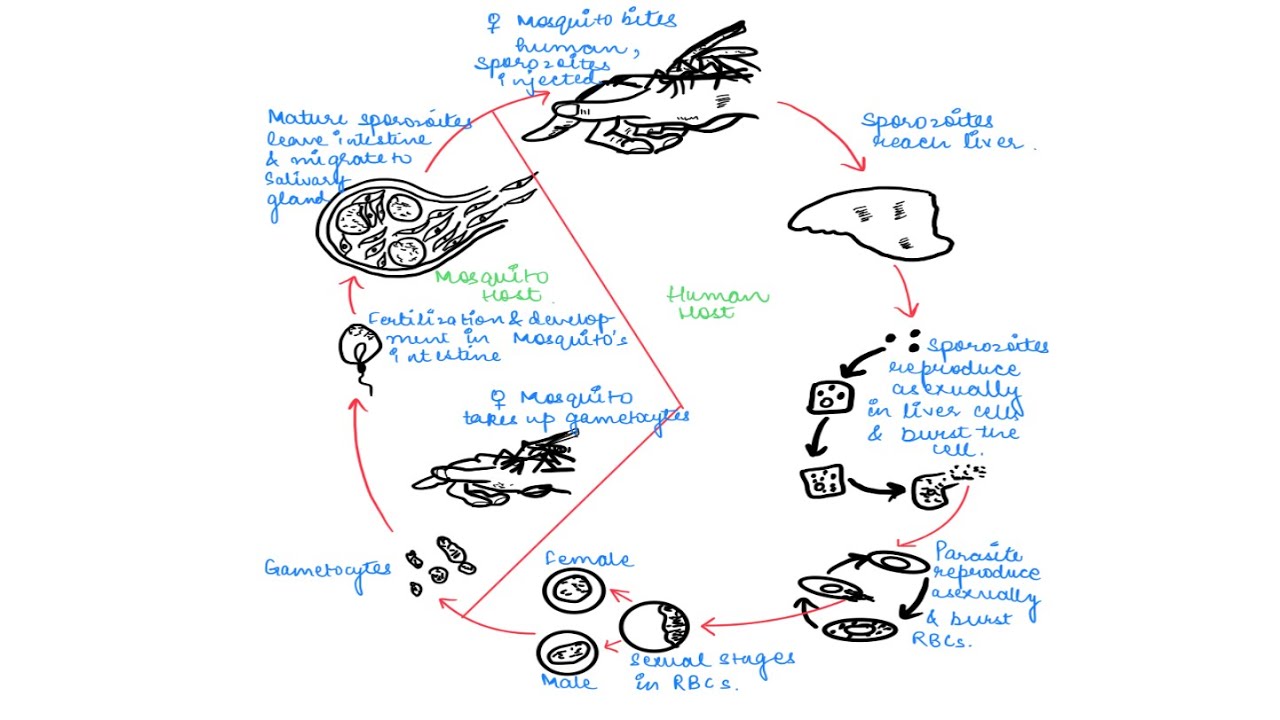 ♀ Mosquito bites
human,
sporozoites
injected
Sporozoites
reach liver.
Mature sporozoites
leave intestine
& migrate to
salivary
gland
Mosquito
Host.
Human
Host
Fertilization & develop-
ment in Mosquito's
intestine
Sporozoites
reproduce
asexually
in liver cells
& burst the
cell.
♀ Mosquito
takes up gametocytes
Parasite
reproduce
asexually
& burst
RBCs.
Gametocytes
Female
Male
Sexual stages
in RBCs.